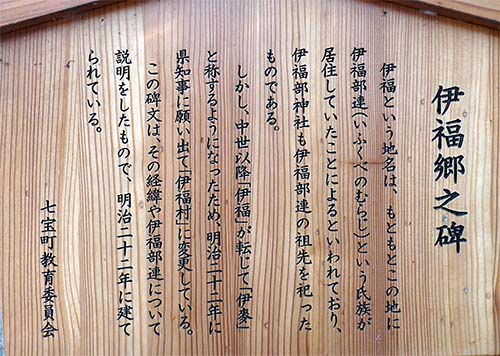 伊福郷之碑
伊福という地名は、もともとこの地に
伊福部連(いふくべのむらじ)という氏族が
居住していたことによるといわれており、
伊福部神社も伊福部連の祖先を祀った
ものである。
しかし、中世以降「伊福」が転じて「伊麥」
と称するようになったため、明治二十二年に
県知事に願い出て「伊福村」に変更している。
この碑文は、その経緯や伊福部連について
説明をしたもので、明治二十二年に建て
られている。
七宝町教育委員会